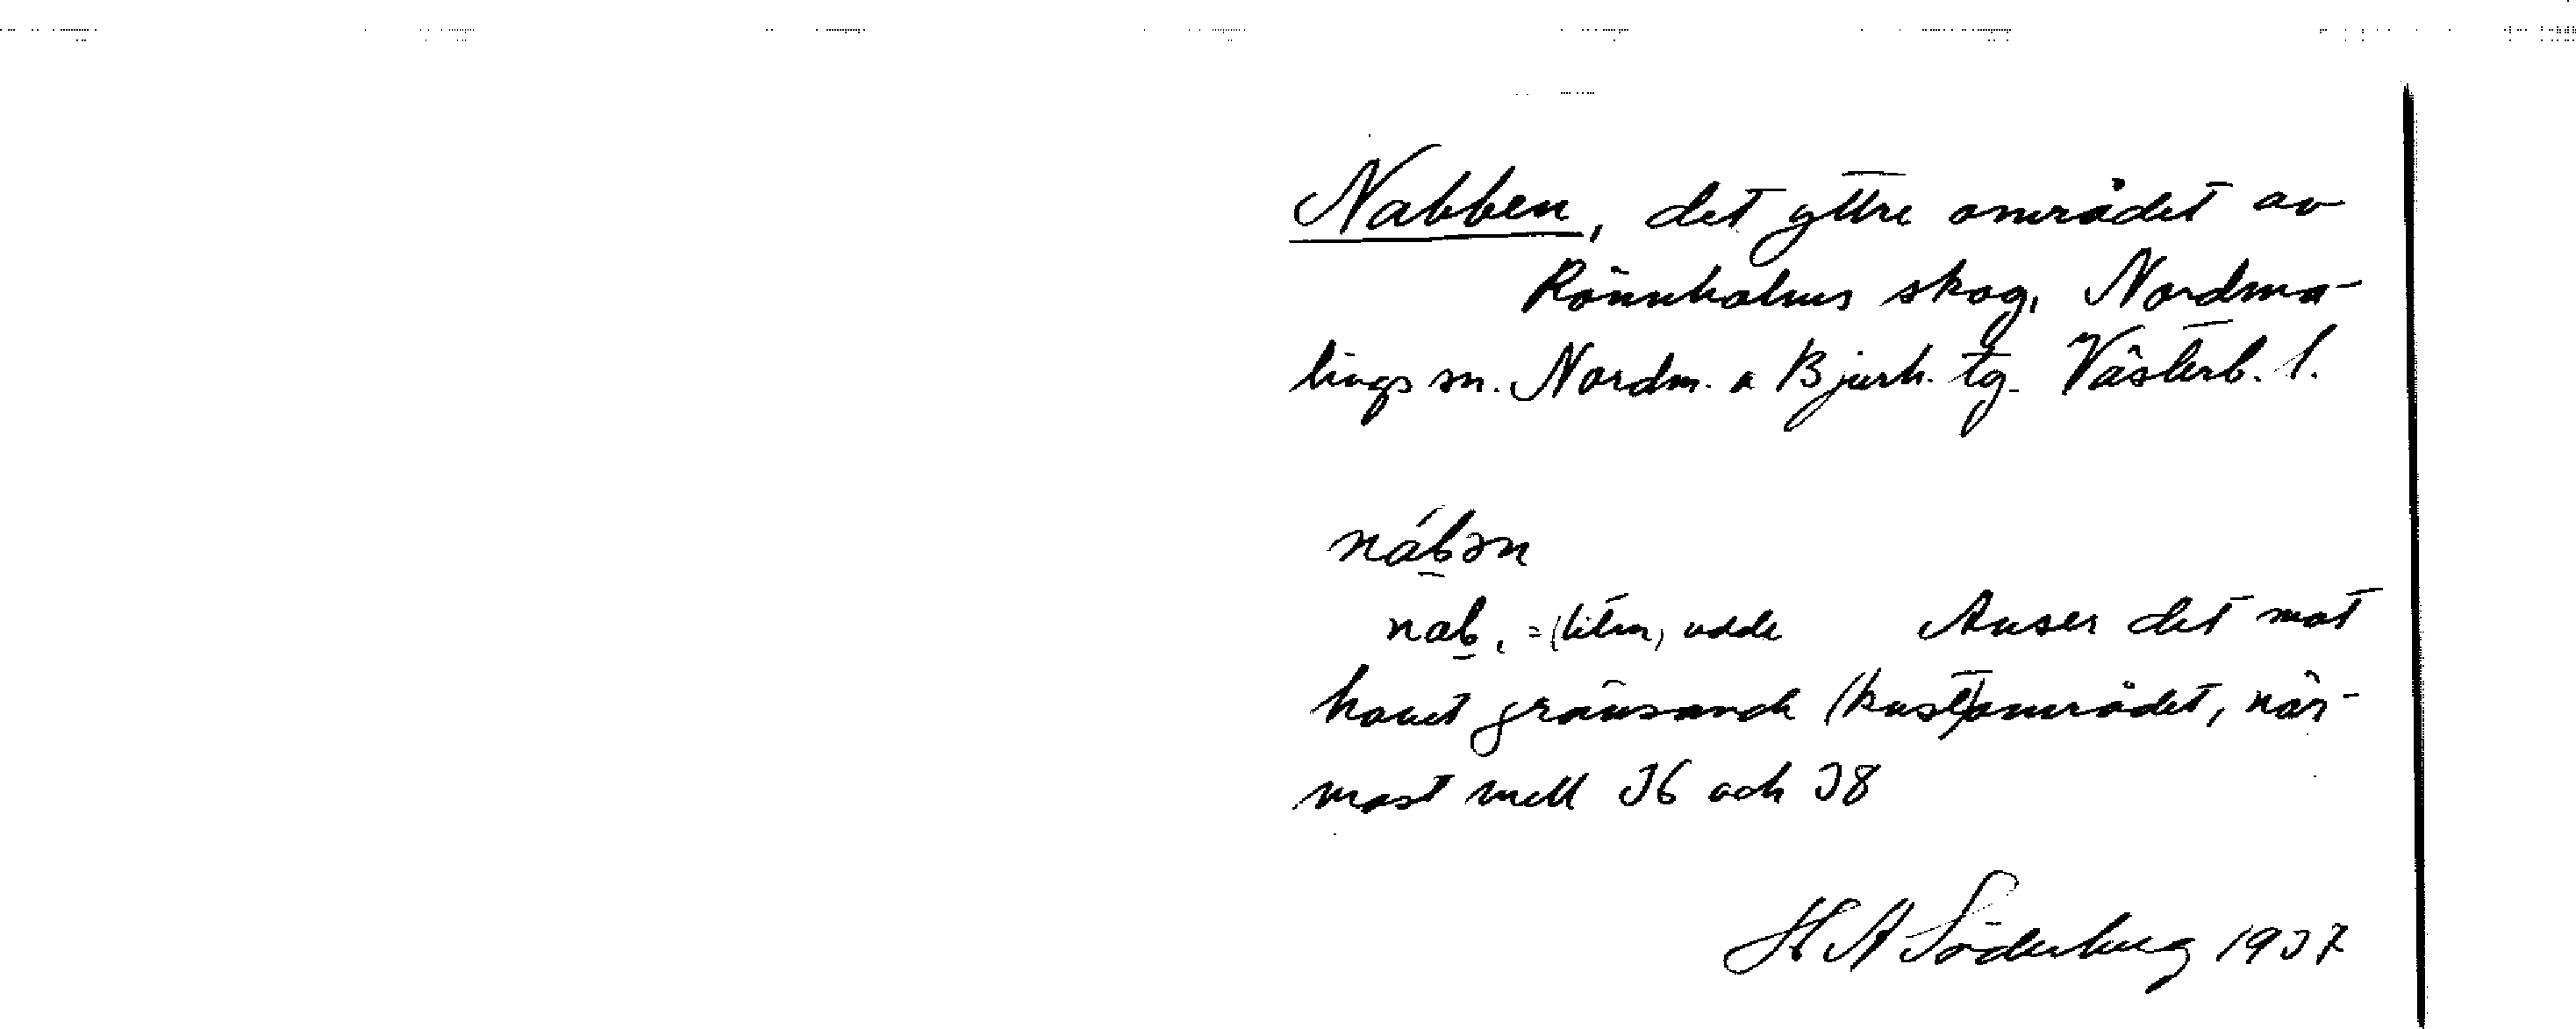 Nabben, det yttre området av
Rönnholms skog, Nordma-
lings sn. Nordm. o Bjurh. tg. Västerb. l.
nábən
nab, = (liten) udde Anser det mot
havet gränsande (kust)området, när-
mast mell 36 och 38
H A Söderberg 1937